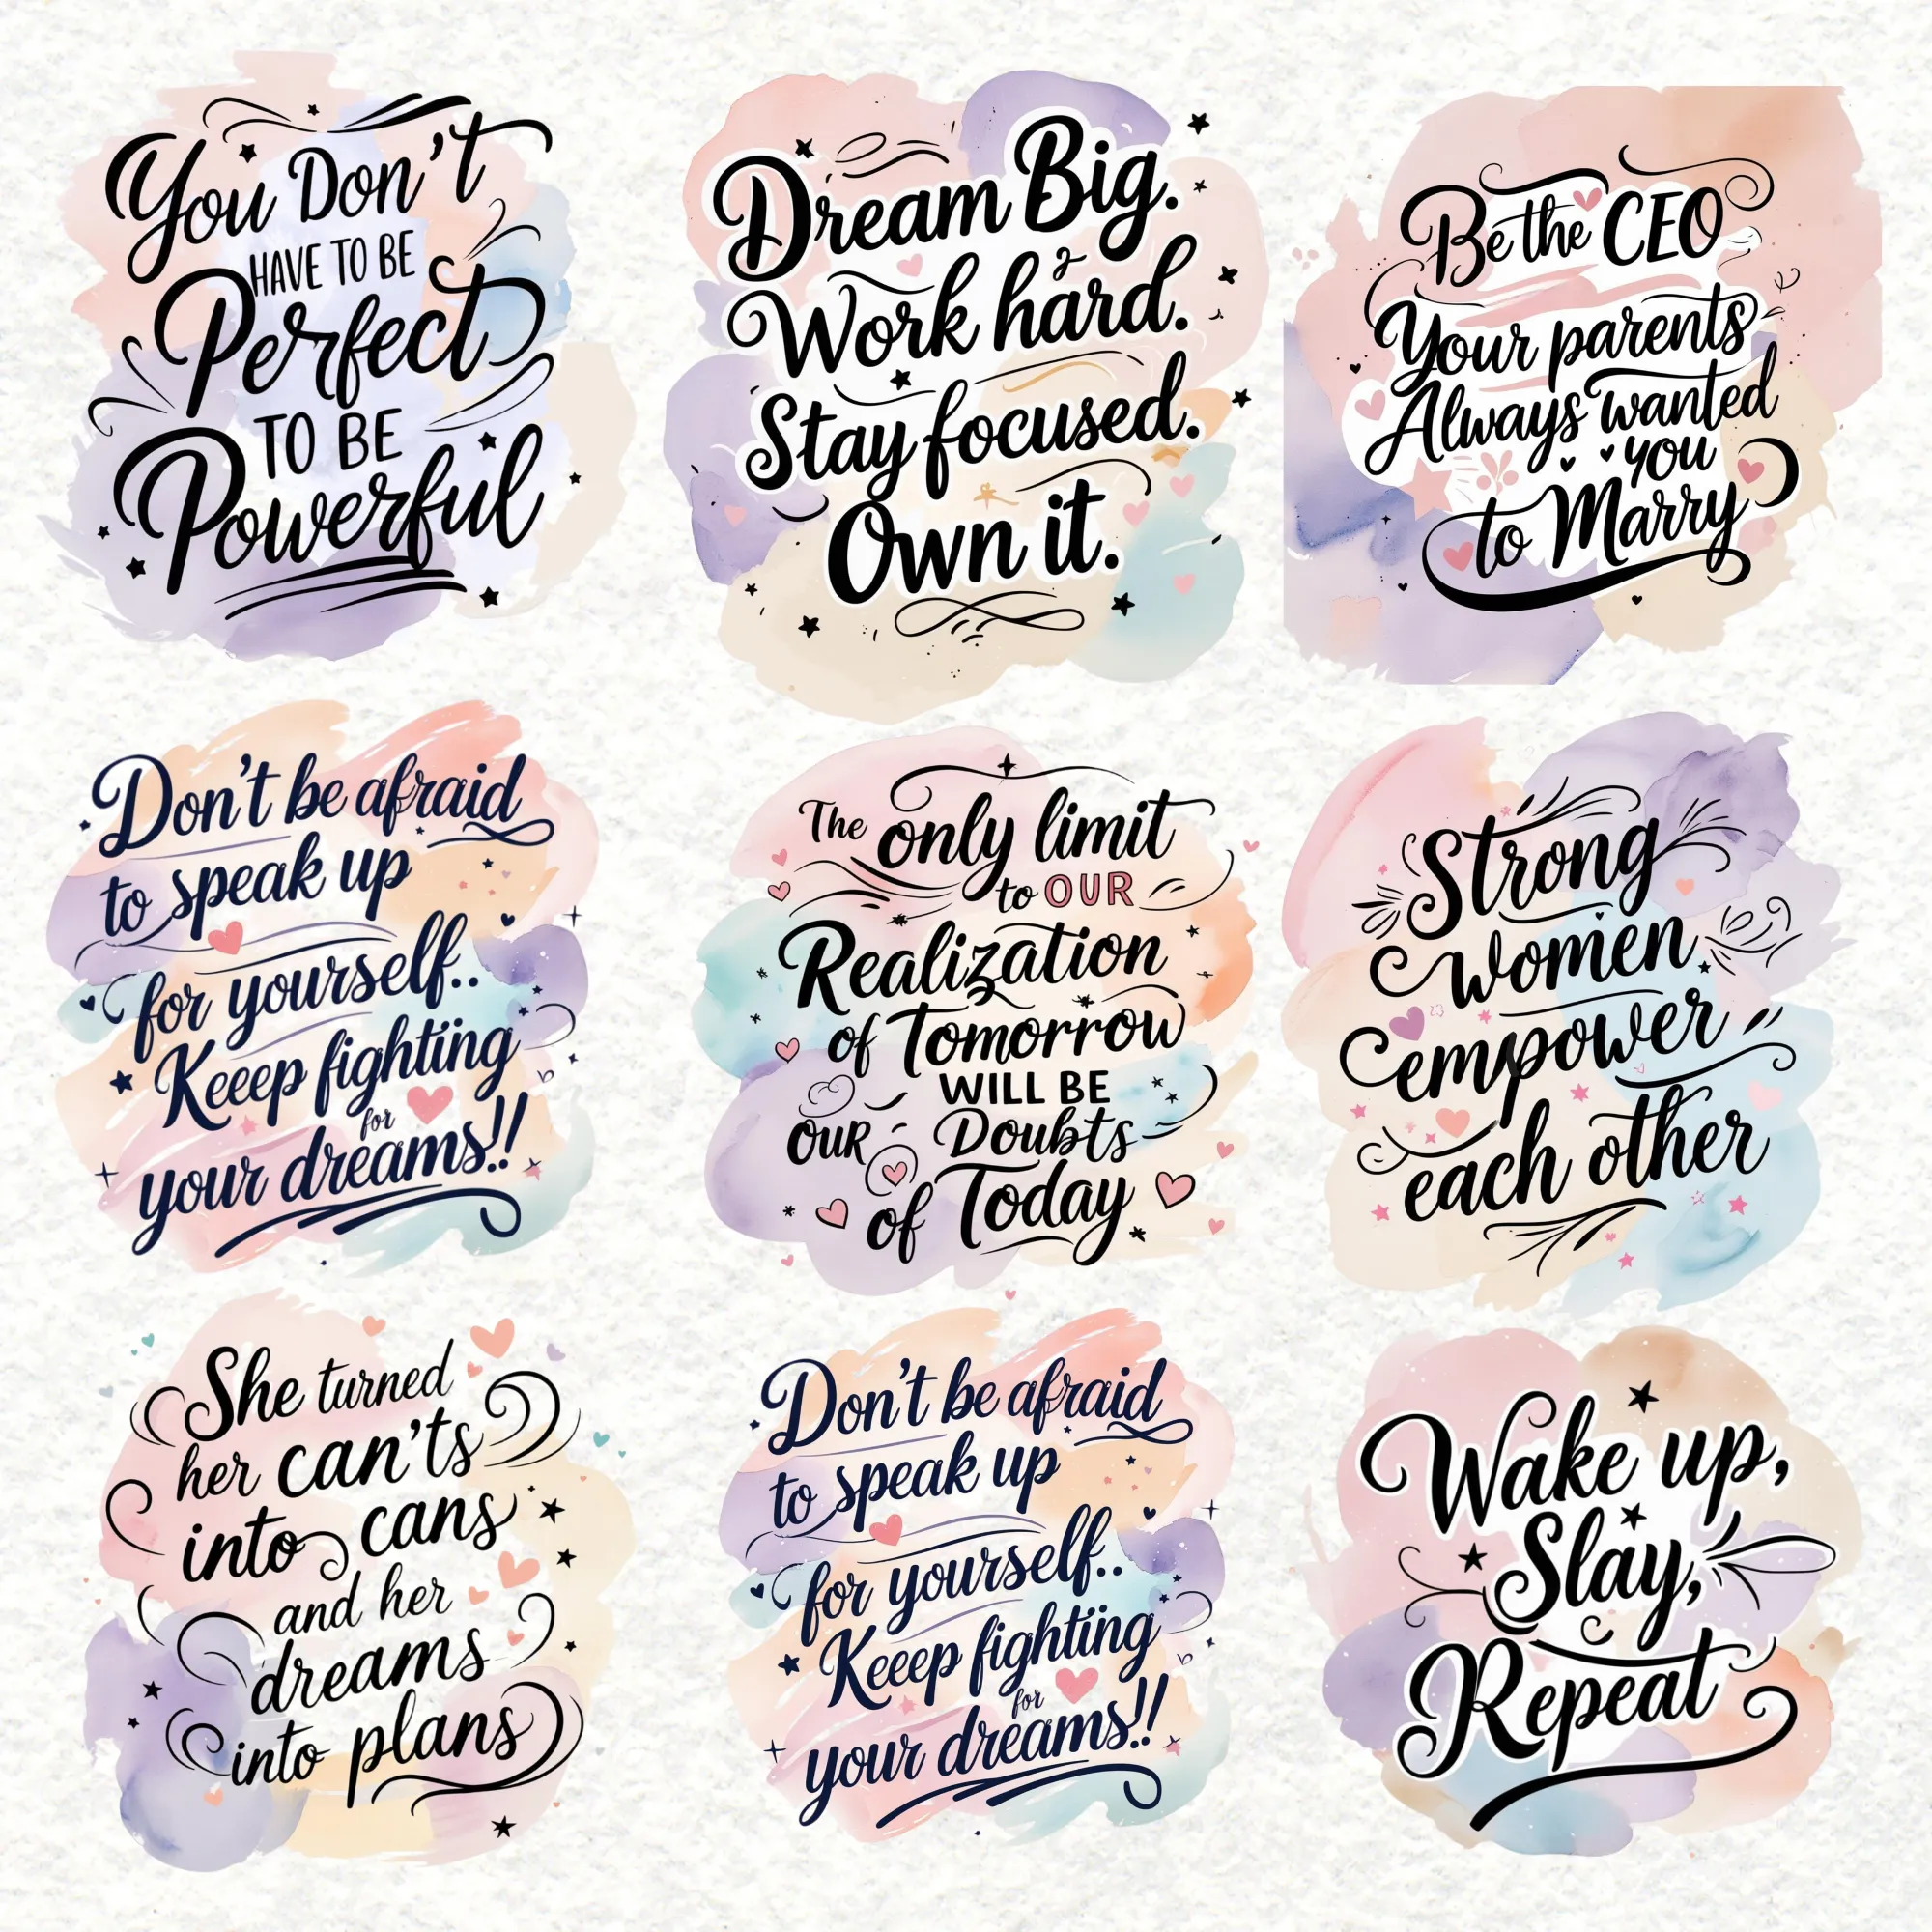 You Don't
HAVE TO BE
Perfect
TO BE
Powerful
Dream Big.
Work hard.
Stay focused.
Own it.
Be the CEO
Your parents
Always wanted
you
to Marry
Don't be afraid
to speak up
for yourself..
Keeep fighting
for
your dreams!!
The only limit
to OUR
Realization
of Tomorrow
WILL BE
OUR Doubts
of Today
Strong
women
empower
each other
She turned
her can'ts
into cans
and her
dreams
into plans
Don't be afraid
to speak up
for yourself..
Keeep fighting
for
your dreams!!
Wake up,
Slay,
Repeat